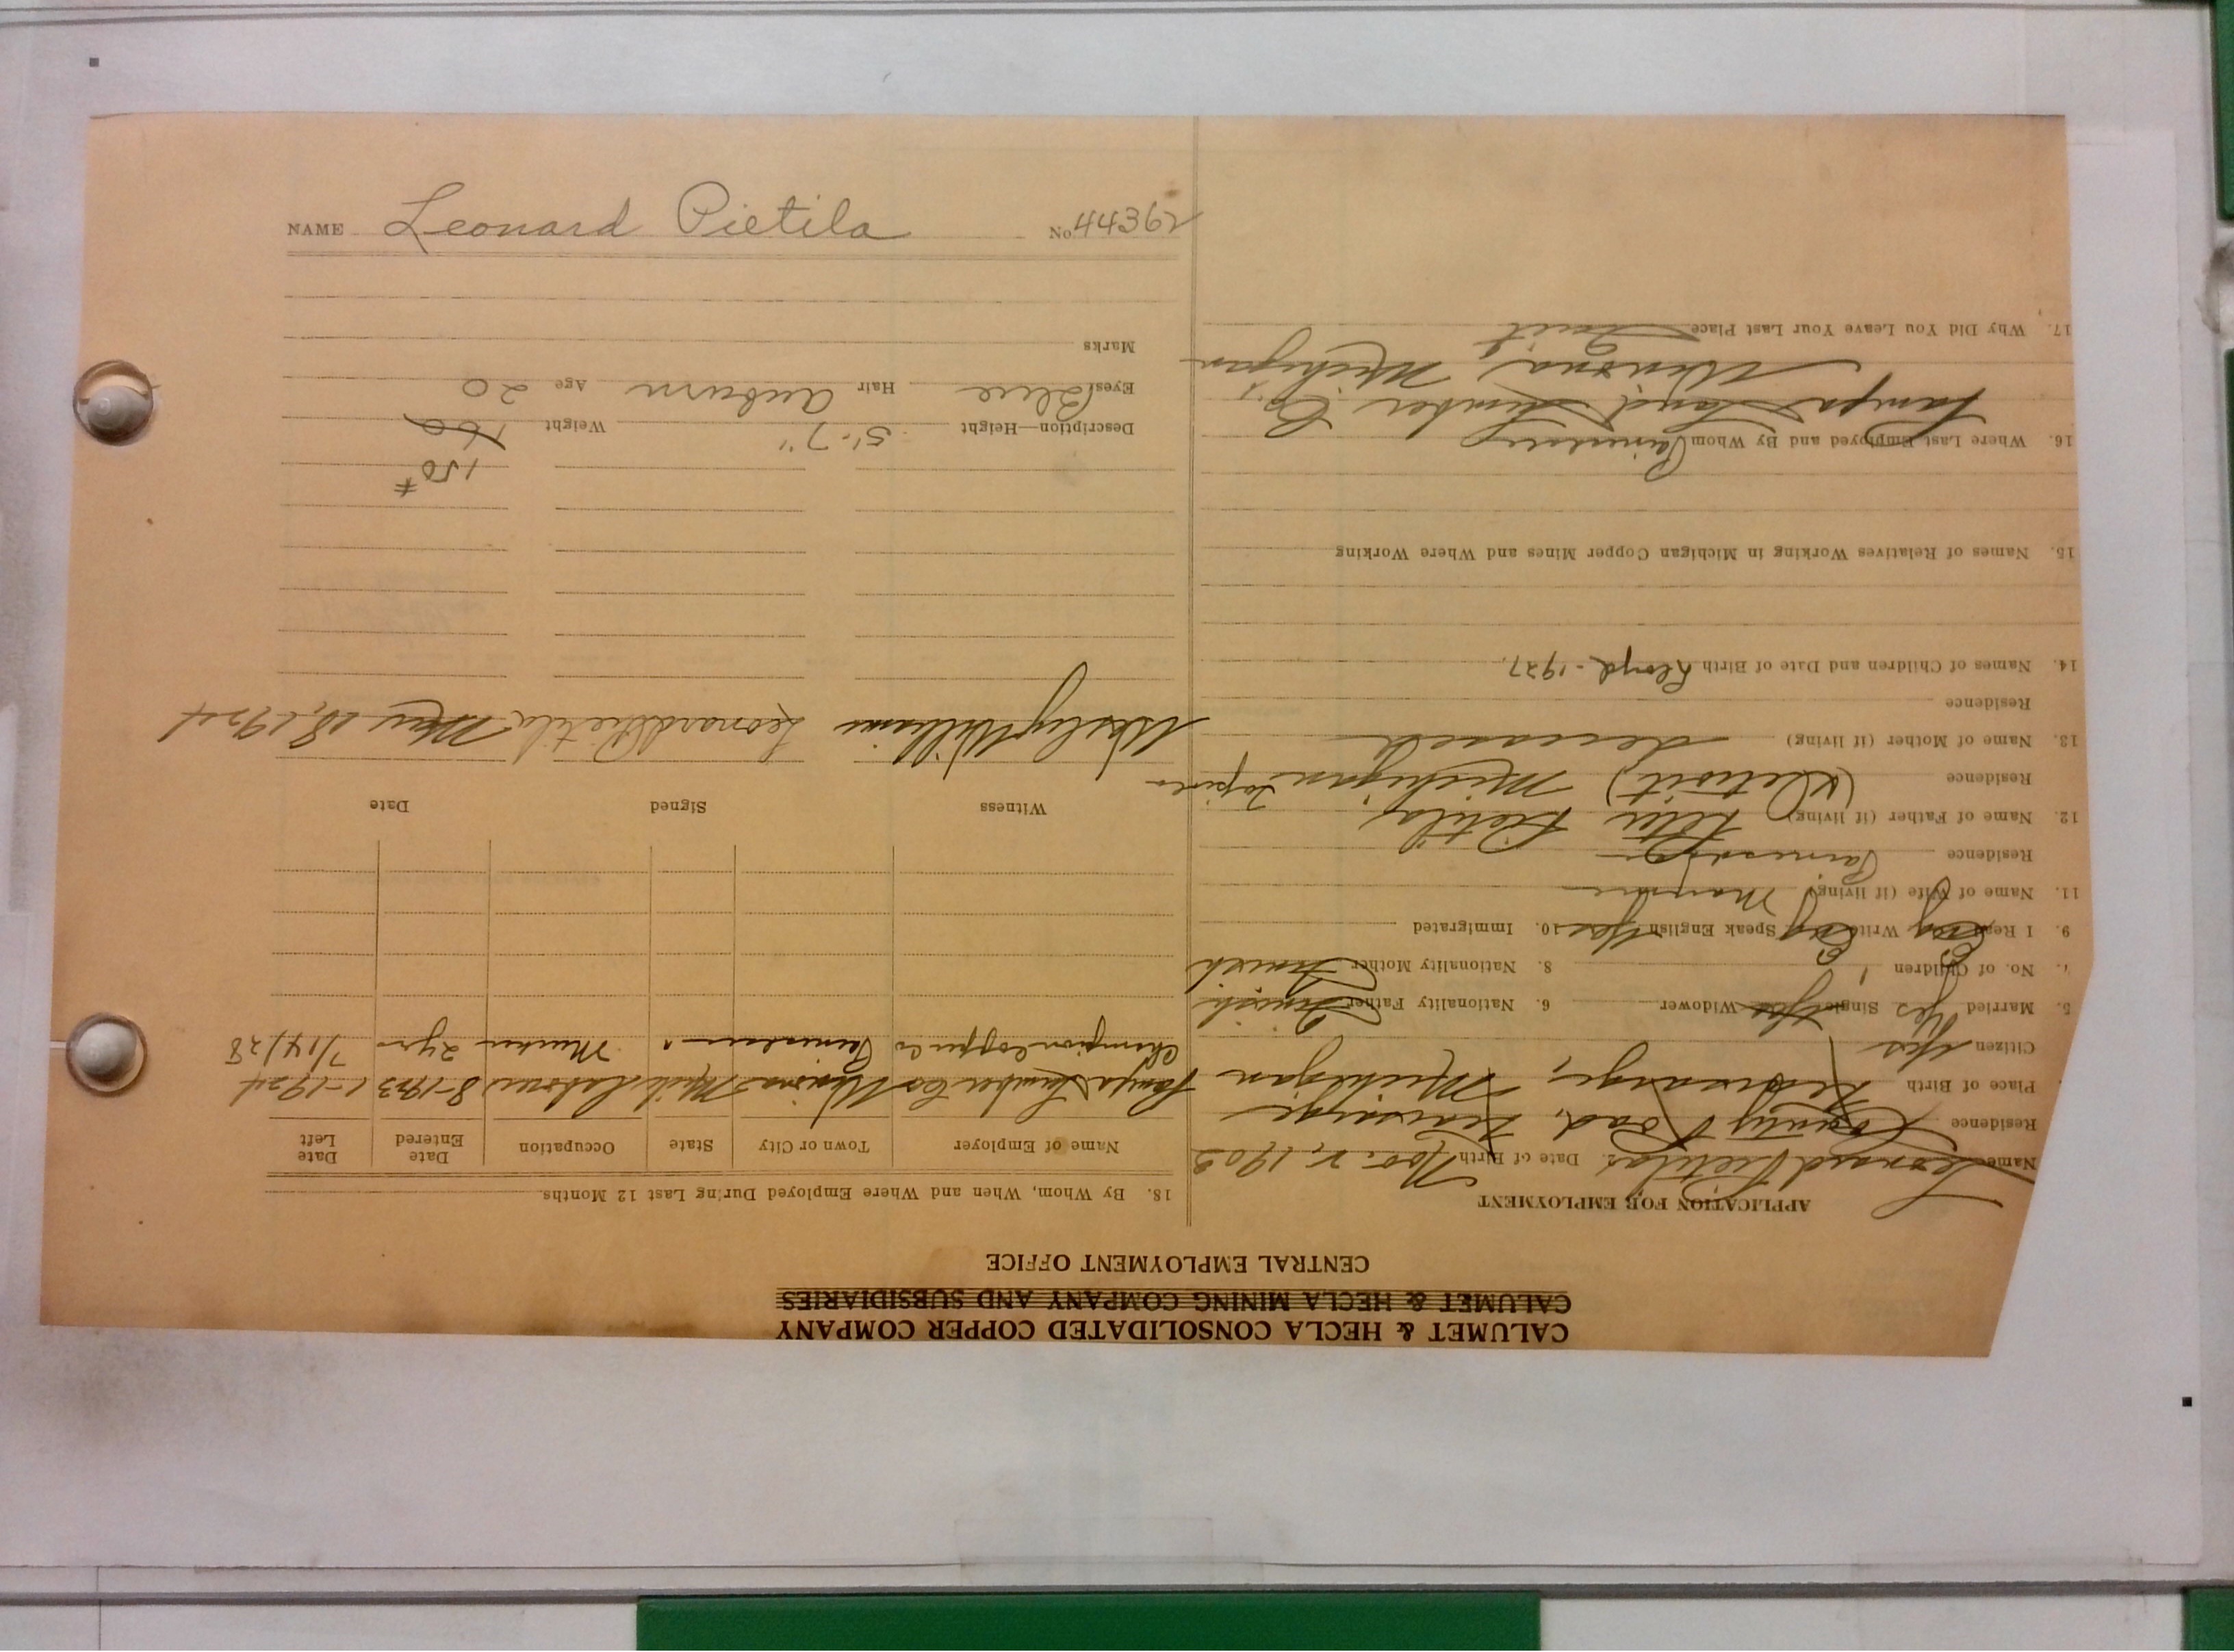 NAME Leonard Pietila No 44362
CALUMET & HECLA CONSOLIDATED COPPER COMPANY
CALUMET & HECLA MINING COMPANY AND SUBSIDIARIES
CENTRAL EMPLOYMENT OFFICE
APPLICATION FOR EMPLOYMENT
Name Leonard Pietila 2. Date of Birth Nov. 2, 1903
Residence County Road,
Place of Birth Michigan
Citizen Yes
5. Married Yes Single Yes Widower 6. Nationality Father Finnish
7. No. of Children 1 8. Nationality Mother Finnish
9. I Read Write Speak English Yes 10. Immigrated
11. Name of Wife (if living)
Residence Painesdale
12. Name of Father (if living) Pietila
Residence (Detroit) Michigan
13. Name of Mother (if living) deceased
Residence
14. Names of Children and Date of Birth Lloyd - 1927.
15. Names of Relatives Working in Michigan Copper Mines and Where Working
16. Where Last Employed and By Whom
Land & Lumber Co.,
Winona, Michigan
17. Why Did You Leave Your Last Place Quit
18. By Whom, When and Where Employed During Last 12 Months
Name of Employer Town or City State Occupation Date Entered Date Left
Lumber Co Winona Mich Laborer 8-1923 1-1924
Champion Copper Co Painesdale " 2 yrs 7/14/28
Witness Signed Date
Wesley Williams Leonard Pietila 18, 1924
150#
Description—Height 5'-7" Weight 160
Eyes Blue Hair auburn Age 20
Marks